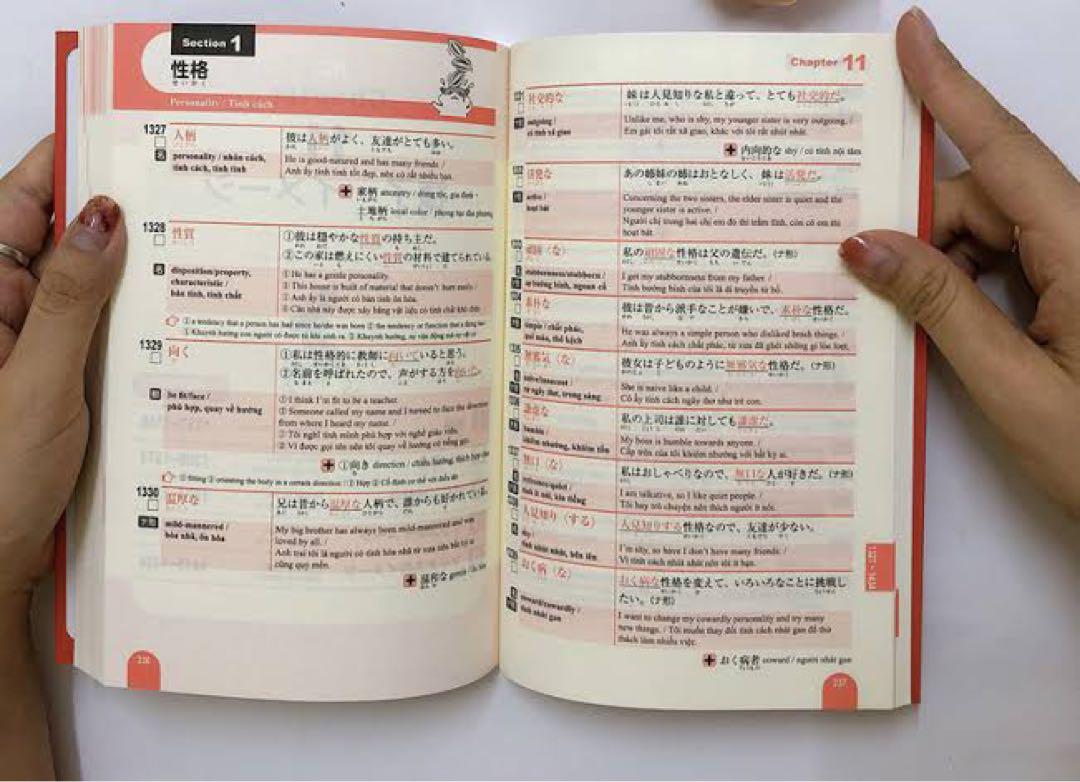 Section 1
性格
せいかく
Personality / Tính cách
1327
人柄
彼は人柄がよく、友達がとても多い。
名
personality / nhân cách,
tính cách, tính tình
He is good-natured and has many friends /
Anh ấy tính tình tốt đẹp, nên có rất nhiều bạn.
+ 家柄 ancestry / dòng tộc, gia đình
土地柄 local color / phong tục địa phương
1328
性質
①彼は穏やかな性質の持ち主だ。
②この家は燃えにくい性質の材料で建てられている
名
disposition/property,
characteristic /
bản tính, tính chất
① He has a gentle personality.
② This house is built of material that doesn't burn easily.
① Anh ấy là người có bản tính ôn hòa.
② Căn nhà này được xây bằng vật liệu có tính chất khó cháy
① a tendency that a person has had since he/she was born ② the tendency or function that a thing has
1329
向く
①私は性格的に教師に向いていると思う。
②名前を呼ばれたので、声がする方を向いた。
動
be fit/face /
phù hợp, quay về hướng
① I think I'm fit to be a teacher.
② Someone called my name and I turned to face the direction
from where I heard my name. /
① Tôi nghĩ tính mình phù hợp với nghề giáo viên.
② Vì được gọi tên nên tôi quay về hướng có tiếng gọi.
+ ①向き direction / chiều hướng, thích hợp
① fitting ② orienting the body in a certain direction / ① Hợp ② Cố định cơ thể với
1330
温厚な
兄は昔から温厚な人柄で、誰からも好かれている。
ナ形
mild-mannered /
hòa nhã, ôn hòa
My big brother has always been mild-mannered and was
loved by all. /
Anh trai tôi là người có tính hòa nhã từ xưa nên bất kỳ ai
cũng quý mến.
+ 温和な
Chapter 11
社交的な
妹は人見知りな私と違って、とても社交的だ。
outgoing /
có tính xã giao
Unlike me, who is shy, my younger sister is very outgoing. /
Em gái tôi rất xã giao, khác với tôi rất nhút nhát.
+ 内向的な shy / có tính nội tâm
活発な
あの姉妹の姉はおとなしく、妹は活発だ。
active /
hoạt bát
Concerning the two sisters, the elder sister is quiet and the
younger sister is active. /
Người chị trong hai chị em đó thì trầm tính, còn cô em thì
hoạt bát.
頑固（な）
私の頑固な性格は父の遺伝だ。(ナ形)
stubbornness/stubborn /
sự bướng bỉnh, ngoan cố
I get my stubbornness from my father. /
Tính bướng bỉnh của tôi là di truyền từ bố.
素朴な
彼は昔から派手なことが嫌いで、素朴な性格だ。
simple / chất phác,
quê mùa, thô kệch
He was always a simple person who disliked brash things. /
Anh ấy tính cách chất phác, từ xưa đã ghét những gì lòe loẹt.
無邪気（な）
彼女は子どものように無邪気な性格だ。(ナ形)
naive/innocent /
sự ngây thơ, trong sáng
She is naive like a child. /
Cô ấy tính cách ngây thơ như trẻ con.
謙虚な
私の上司は誰に対しても謙虚だ。
humble /
khiêm nhường, khiêm tốn
My boss is humble towards anyone. /
Cấp trên của tôi khiêm nhường với bất kỳ ai.
無口（な）
私はおしゃべりなので、無口な人が好きだ。(ナ形)
reticence/quiet /
tính ít nói, kín tiếng
I am talkative, so I like quiet people. /
Tôi hay trò chuyện nên thích người ít nói.
人見知り（する）
人見知りする性格なので、友達が少ない。
shy /
tính nhút nhát, bẽn lẽn
I'm shy, so have I don't have many friends. /
Vì tính cách nhút nhát nên tôi ít bạn.
おく病（な）
おく病な性格を変えて、いろいろなことに挑戦し
たい。(ナ形)
coward/cowardly /
tính nhát gan
I want to change my cowardly personality and try many
new things. / Tôi muốn thay đổi tính cách nhát gan để thử
thách làm nhiều việc.
+ おく病者 coward / người nhát gan
237